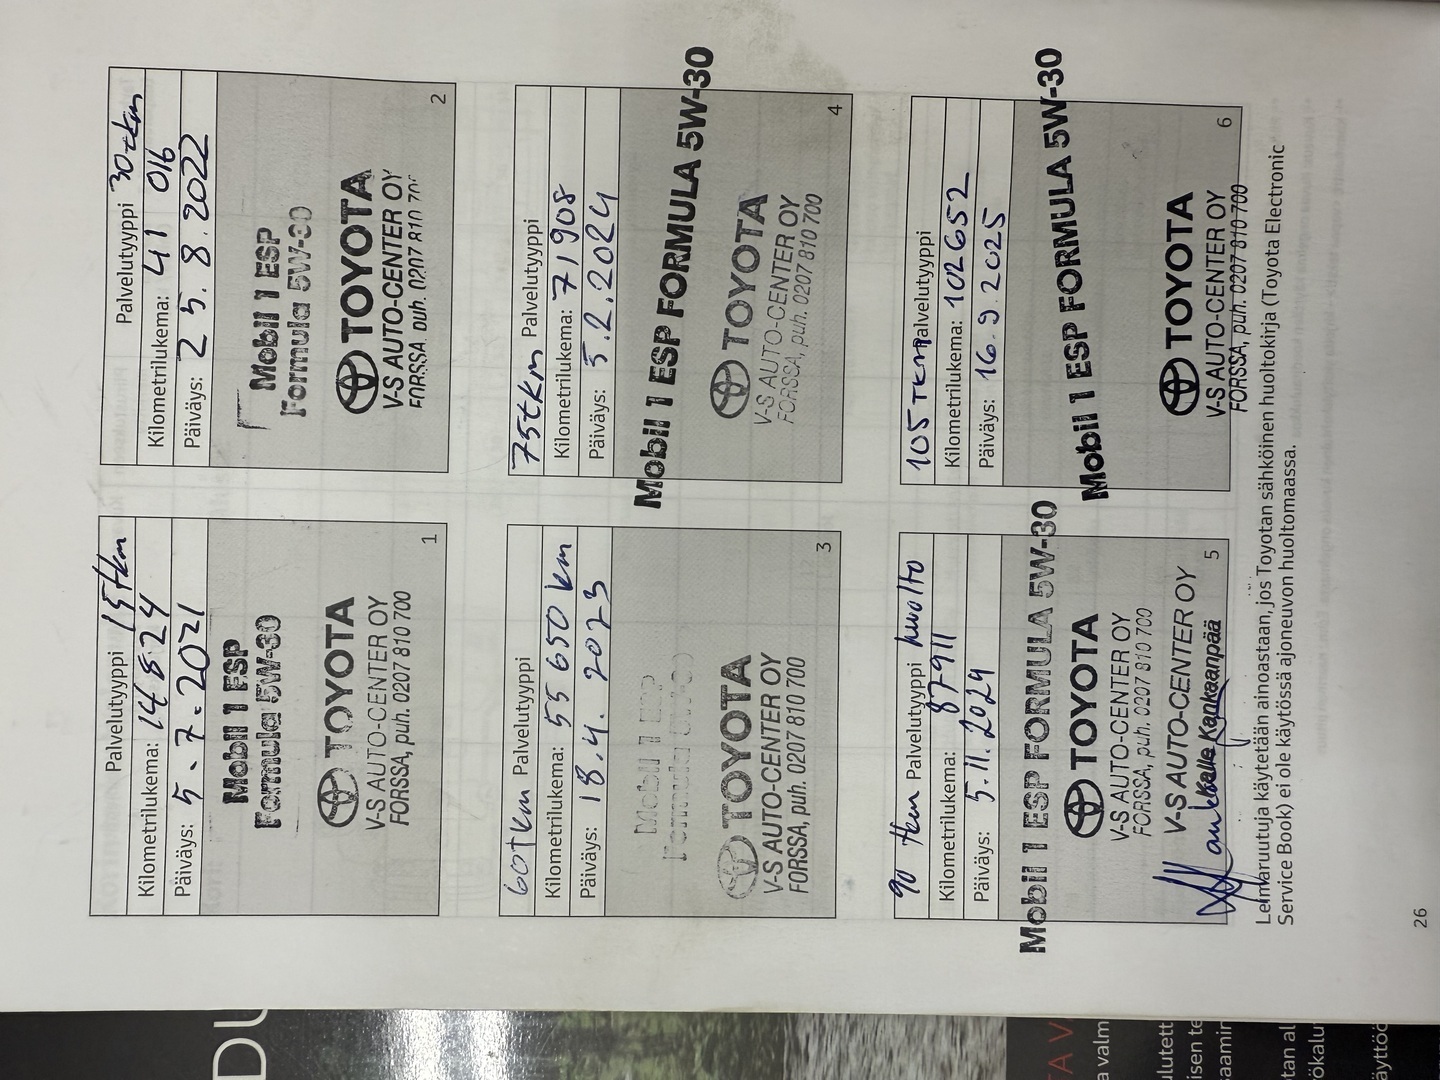 Palvelutyyppi 15tkm
Kilometrilukema: 14824
Päiväys: 5.7.2021
Mobil 1 ESP
Formula 5W-30
TOYOTA
V-S AUTO-CENTER OY
FORSSA, puh. 0207 810 700
1
Palvelutyyppi 30tkm
Kilometrilukema: 41 016
Päiväys: 25.8.2022
Mobil 1 ESP
Formula 5W-30
TOYOTA
V-S AUTO-CENTER OY
FORSSA, puh. 0207 810 70
2
60tkm Palvelutyyppi
Kilometrilukema: 55 650 km
Päiväys: 18.4. 2023
Mobil 1 ESP
TOYOTA
V-S AUTO-CENTER OY
FORSSA, puh. 0207 810 700
3
75tkm Palvelutyyppi
Kilometrilukema: 71908
Päiväys: 5.2.2024
Mobil 1 ESP FORMULA 5W-30
TOYOTA
V-S AUTO-CENTER OY
FORSSA, puh. 0207 810 700
4
90 tkm Palvelutyyppi huolto
Kilometrilukema: 87911
Päiväys: 5.11.2024
Mobil 1 ESP FORMULA 5W-30
TOYOTA
V-S AUTO-CENTER OY
FORSSA, puh. 0207 810 700
V-S AUTO-CENTER OY
Kankaanpää
5
105 TKM Palvelutyyppi
Kilometrilukema: 102652
Päiväys: 16.9.2025
Mobil 1 ESP FORMULA 5W-30
TOYOTA
V-S AUTO-CENTER OY
FORSSA, puh. 0207 810 700
6
Leimaruutuja käytetään ainoastaan, jos Toyotan sähköinen huoltokirja (Toyota Electronic
Service Book) ei ole käytössä ajoneuvon huoltomaassa.
26
DU
TA VA
a valm
ulutett
isen te
saamin
tan al
ökalu
äyttöö